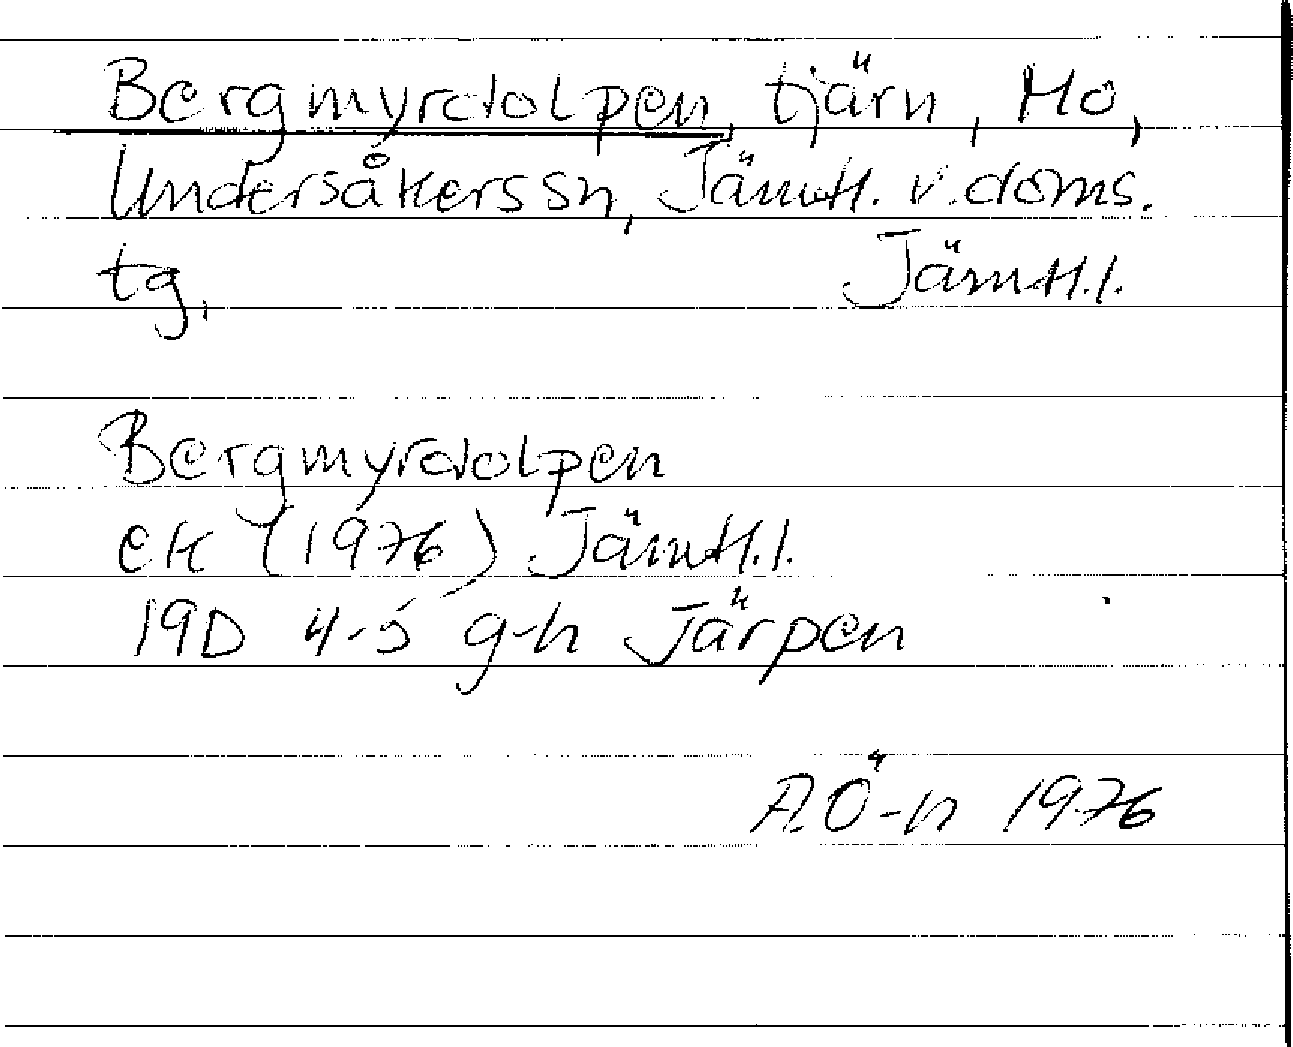 Bergmyrdolpen, tjärn, Mo,
Undersåkers sn, Jämtl. v. doms.
tg, Jämtl.l.
Bergmyrdolpen
ek (1976) Jämtl.l.
19D 4-5 g-h Järpen
AÖ-n 1976